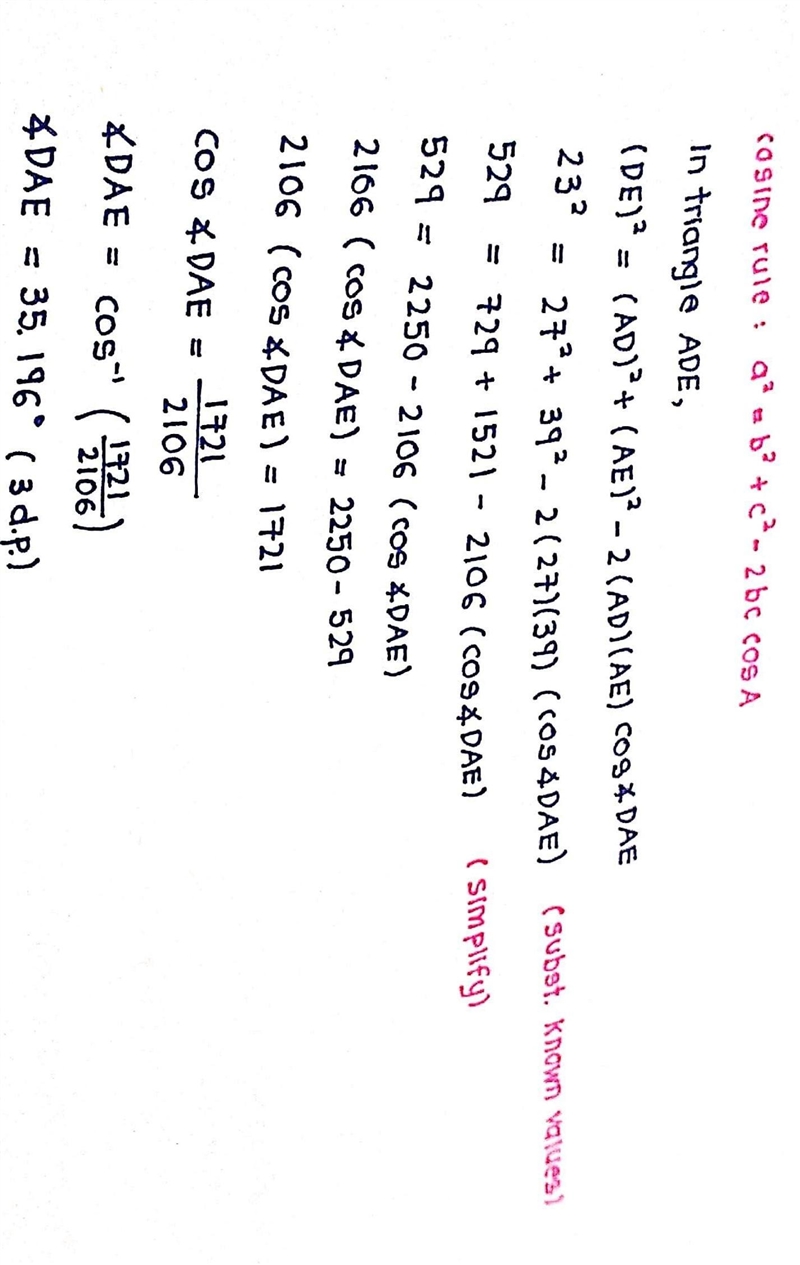 cosine rule : a² = b² + c² - 2bc cos A
In triangle ADE,
(DE)² = (AD)² + (AE)² - 2(AD)(AE) cos∡DAE
23² = 27² + 39² - 2(27)(39) (cos∡DAE) (subst. known values)
529 = 729 + 1521 - 2106 (cos∡DAE) (simplify)
529 = 2250 - 2106 (cos ∡DAE)
2106 (cos∡DAE) = 2250 - 529
2106 (cos∡DAE) = 1721
cos ∡DAE = 1721/2106
∡DAE = cos⁻¹ (1721/2106)
∡DAE = 35.196° (3 d.p.)